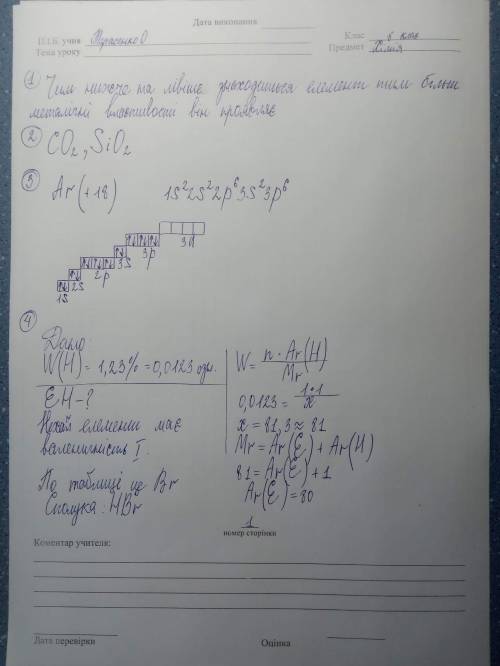 Дата виконання
П.І.Б. учня Тарасенко О
Клас 8 клас
Тема уроку
Предмет Хімія
① Чим нижче та лівіше знаходиться елемент тим більш
металічні властивості він проявляє
② CO₂, SiO₂
③ Ar (+18) 1S²2S²2p⁶3S²3p⁶
3d
3p
3S
2p
2S
1S
④
Дано
W(H) = 1,23% = 0,0123 одн.
EH - ?
Нехай елемент має
валентність I.
По таблиці це Br
Сполука: HBr
W = n · Ar(H) / Mr
0,0123 = 1·1 / x
x = 81,3 ≈ 81
Mr = Ar(E) + Ar(H)
81 = Ar(E) + 1
Ar(E) = 80
1
номер сторінки
Коментар учителя:
Дата перевірки
Оцінка